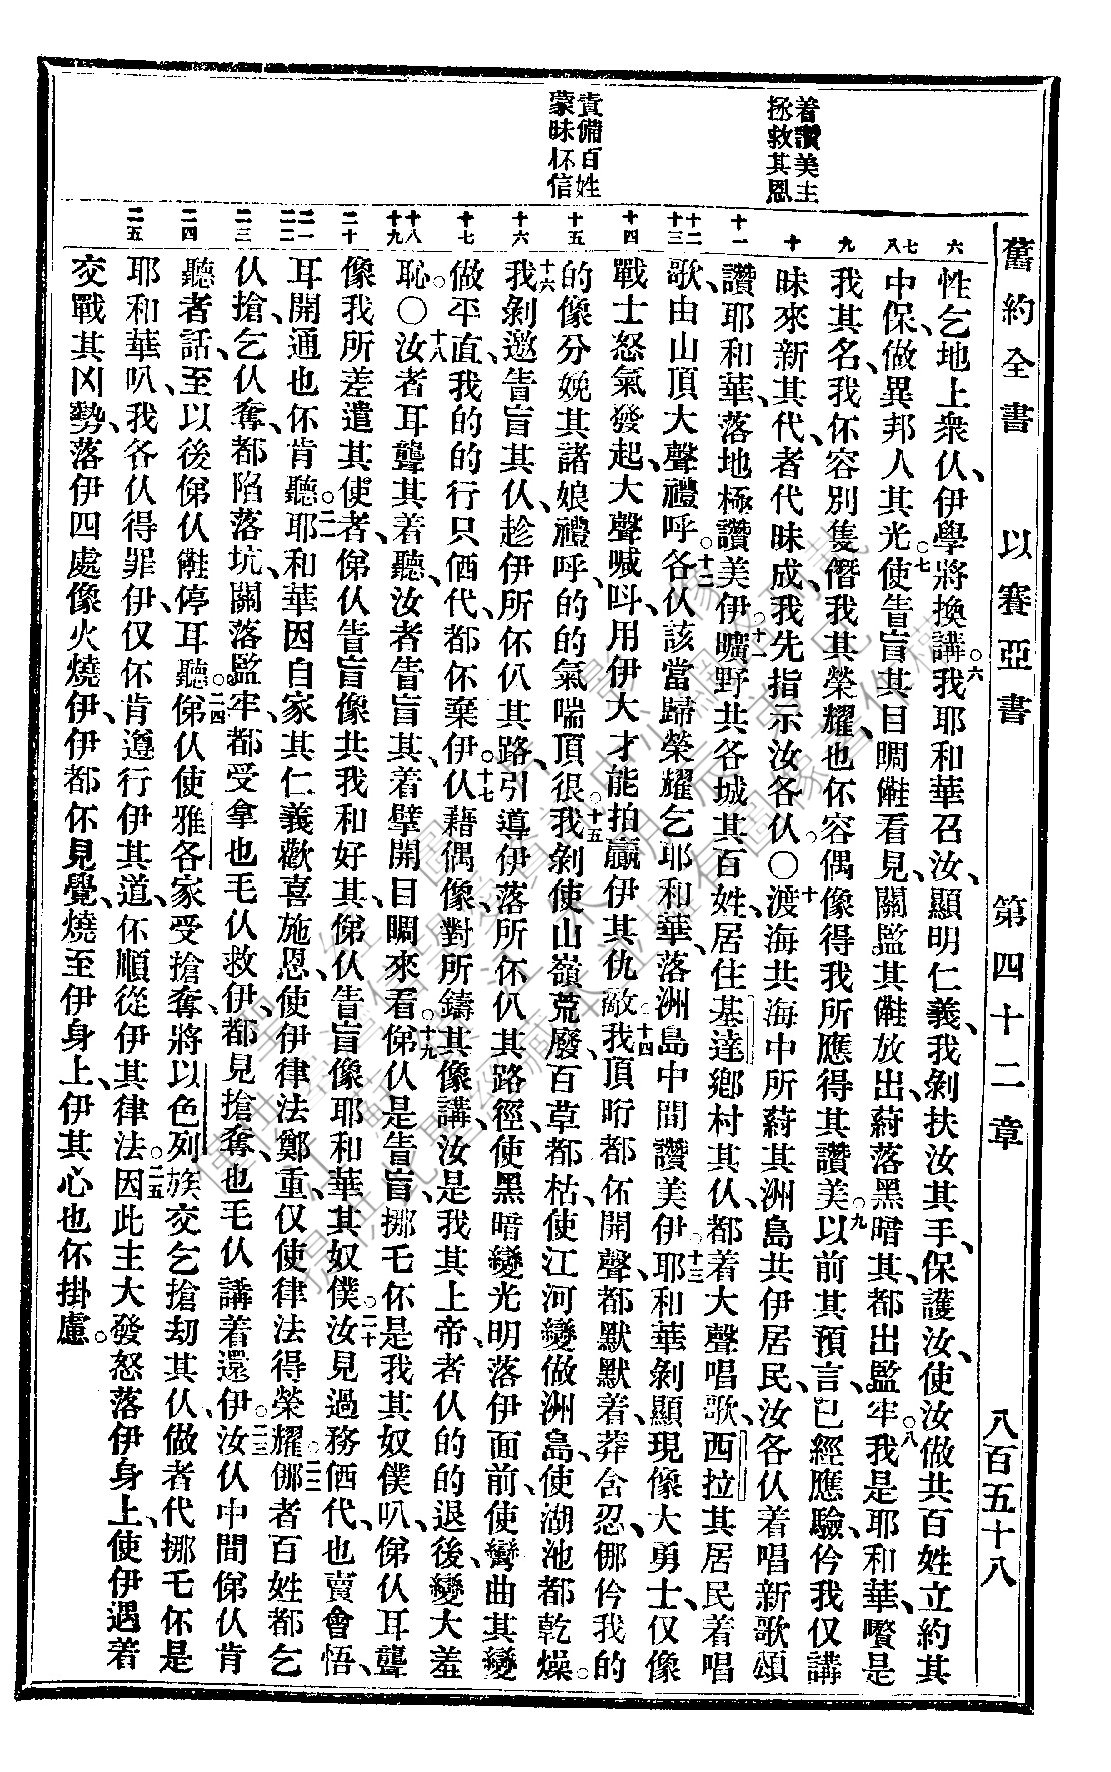 舊約全書 以賽亞書 第四十二章 八百五十八
着讚美主
拯救其恩
責備百姓
蒙昧伓信
六
七
八
九
十
十一
十二
十三
十四
十五
十六
十七
十八
十九
二十
二一
二二
二三
二四
二五
性、乞地上衆仈、伊學將換講。六我耶和華召汝、顯明仁義、我剝扶汝其手、保護汝、使汝做共百姓立約其
中保、做異邦人其光。七使眚盲其目瞯儺看見、關監其儺放出、蔚落黑暗其、都出監牢。八我是耶和華、嚽是
我其名、我伓容別隻僭我其榮耀、也伓容偶像得我所應得其讚美。九以前其預言、已經應驗、伶我仅講
昧來新其代、者代昧成、我先指示汝各仈。〇十渡海共海中所蔚其洲島共伊居民、汝各仈着唱新歌頌
讚耶和華、落地極讚美伊。十一曠野共各城其百姓、居住基達鄉村其仈、都着大聲唱歌、西拉其居民着唱
歌、由山頂大聲禮呼。十二各仈該當歸榮耀乞耶和華、落洲島中間讚美伊。十三耶和華剝顯現像大勇士、仅像
戰士怒氣發起、大聲喊呌、用伊大才能拍贏伊其仇敵。十四我頂昕都伓開聲、都默默着、莽含忍、㑚伶我的
的像分娩其諸娘禮呼、的的氣喘頂很。十五我剝使山嶺荒廢、百草都枯、使江河變做洲島、使湖池都乾燥。
十六我剝邀眚盲其仈、趁伊所伓仈其路、引導伊落所伓仈其路徑、使黑暗變光明落伊面前、使彎曲其變
做平直、我的的行只価代、都伓棄伊。十七仈藉偶像、對所鑄其像講、汝是我其上帝、者仈的的退後、變大羞
恥。〇十八汝者耳聾其着聽、汝者眚盲其、着擘開目瞯來看。十九俤仈是眚盲、挪乇伓是我其奴僕叭、俤仈耳聾
像我所差遣其使者、俤仈眚盲像共我和好其、俤仈眚盲像耶和華其奴僕。二十汝見過務価代、也賣會悟、
耳開通也伓肯聽。二一耶和華因自家其仁義歡喜施恩、使伊律法鄭重、仅使律法得榮耀。二二㑚者百姓都乞
仈搶、乞仈奪、都陷落坑、關落監牢、都受拿也毛仈救伊、都見搶奪、也毛仈講着還伊。二三汝仈中間俤仈肯
聽者話、至以後俤仈儺停耳聽。二四俤仈使雅各家受搶奪、將以色列族交乞搶刧其仈、做者代挪乇伓是
耶和華叭、我各仈得罪伊、仅伓肯遵行伊其道、伓順從伊其律法。二五因此主大發怒落伊身上、使伊遇着
交戰其凶勢、落伊四處像火燒伊、伊都伓見覺、燒至伊身上、伊其心也伓掛慮。